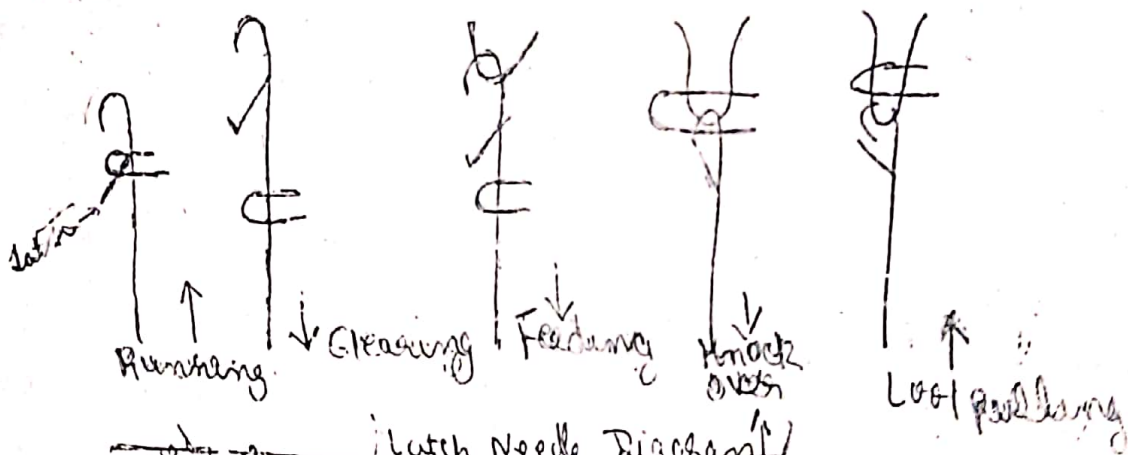 Latch
Running
Clearing
Feeding
Knock
over
Loop pulling
"Latch Needle Diagram"